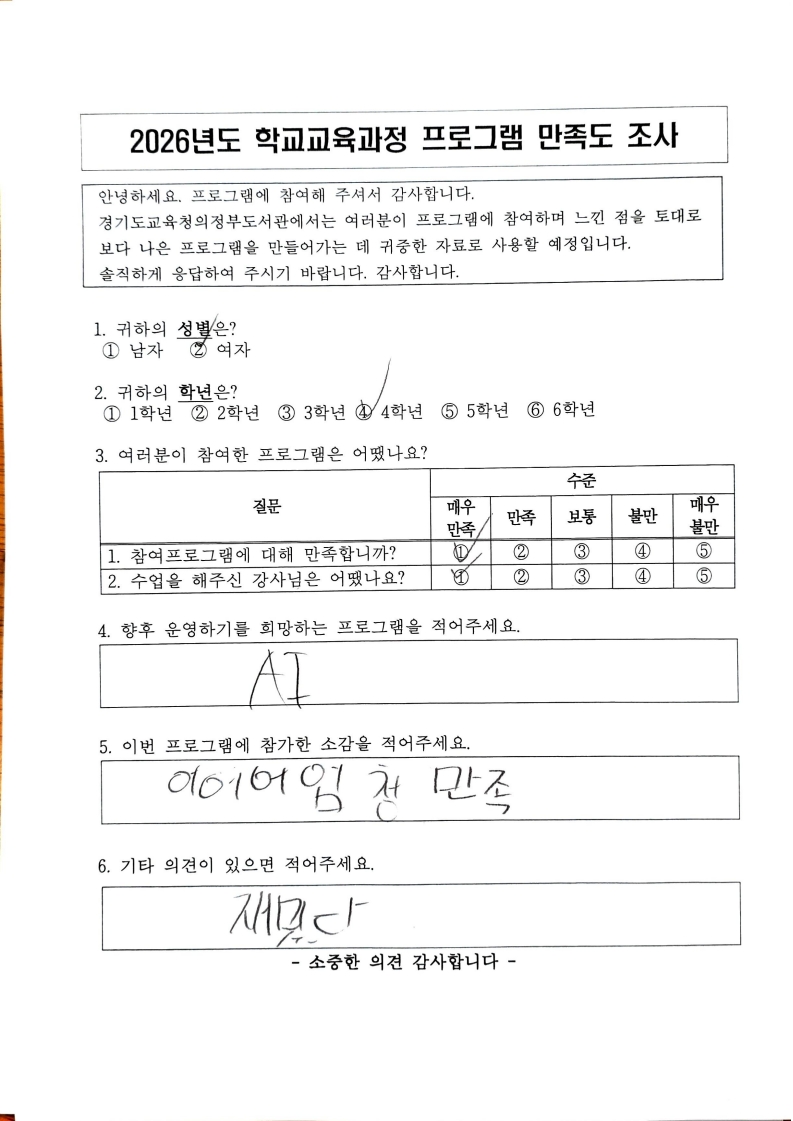 2026년도 학교교육과정 프로그램 만족도 조사
안녕하세요. 프로그램에 참여해 주셔서 감사합니다.
경기도교육청의정부도서관에서는 여러분이 프로그램에 참여하며 느낀 점을 토대로
보다 나은 프로그램을 만들어가는 데 귀중한 자료로 사용할 예정입니다.
솔직하게 응답하여 주시기 바랍니다. 감사합니다.
1. 귀하의 성별은?
① 남자 ② 여자
2. 귀하의 학년은?
① 1학년 ② 2학년 ③ 3학년 ④ 4학년 ⑤ 5학년 ⑥ 6학년
3. 여러분이 참여한 프로그램은 어땠나요?
질문 수준
매우 만족 만족 보통 불만 매우 불만
1. 참여프로그램에 대해 만족합니까? ① ② ③ ④ ⑤
2. 수업을 해주신 강사님은 어땠나요? ① ② ③ ④ ⑤
4. 향후 운영하기를 희망하는 프로그램을 적어주세요.
AI
5. 이번 프로그램에 참가한 소감을 적어주세요.
어어어엄청 만족
6. 기타 의견이 있으면 적어주세요.
재밌다
- 소중한 의견 감사합니다 -